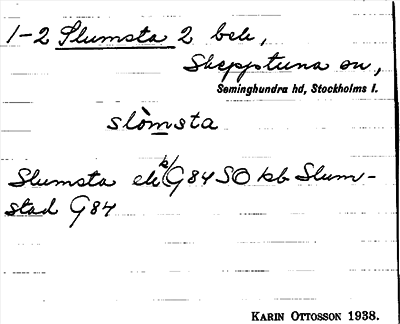 1-2 Slumsta 2 bel,
Skepptuna sn,
Seminghundra hd, Stockholms l.
slòmsta
Slumsta ek G84 SO kb Slum-
stad G84
KARIN OTTOSSON 1938.